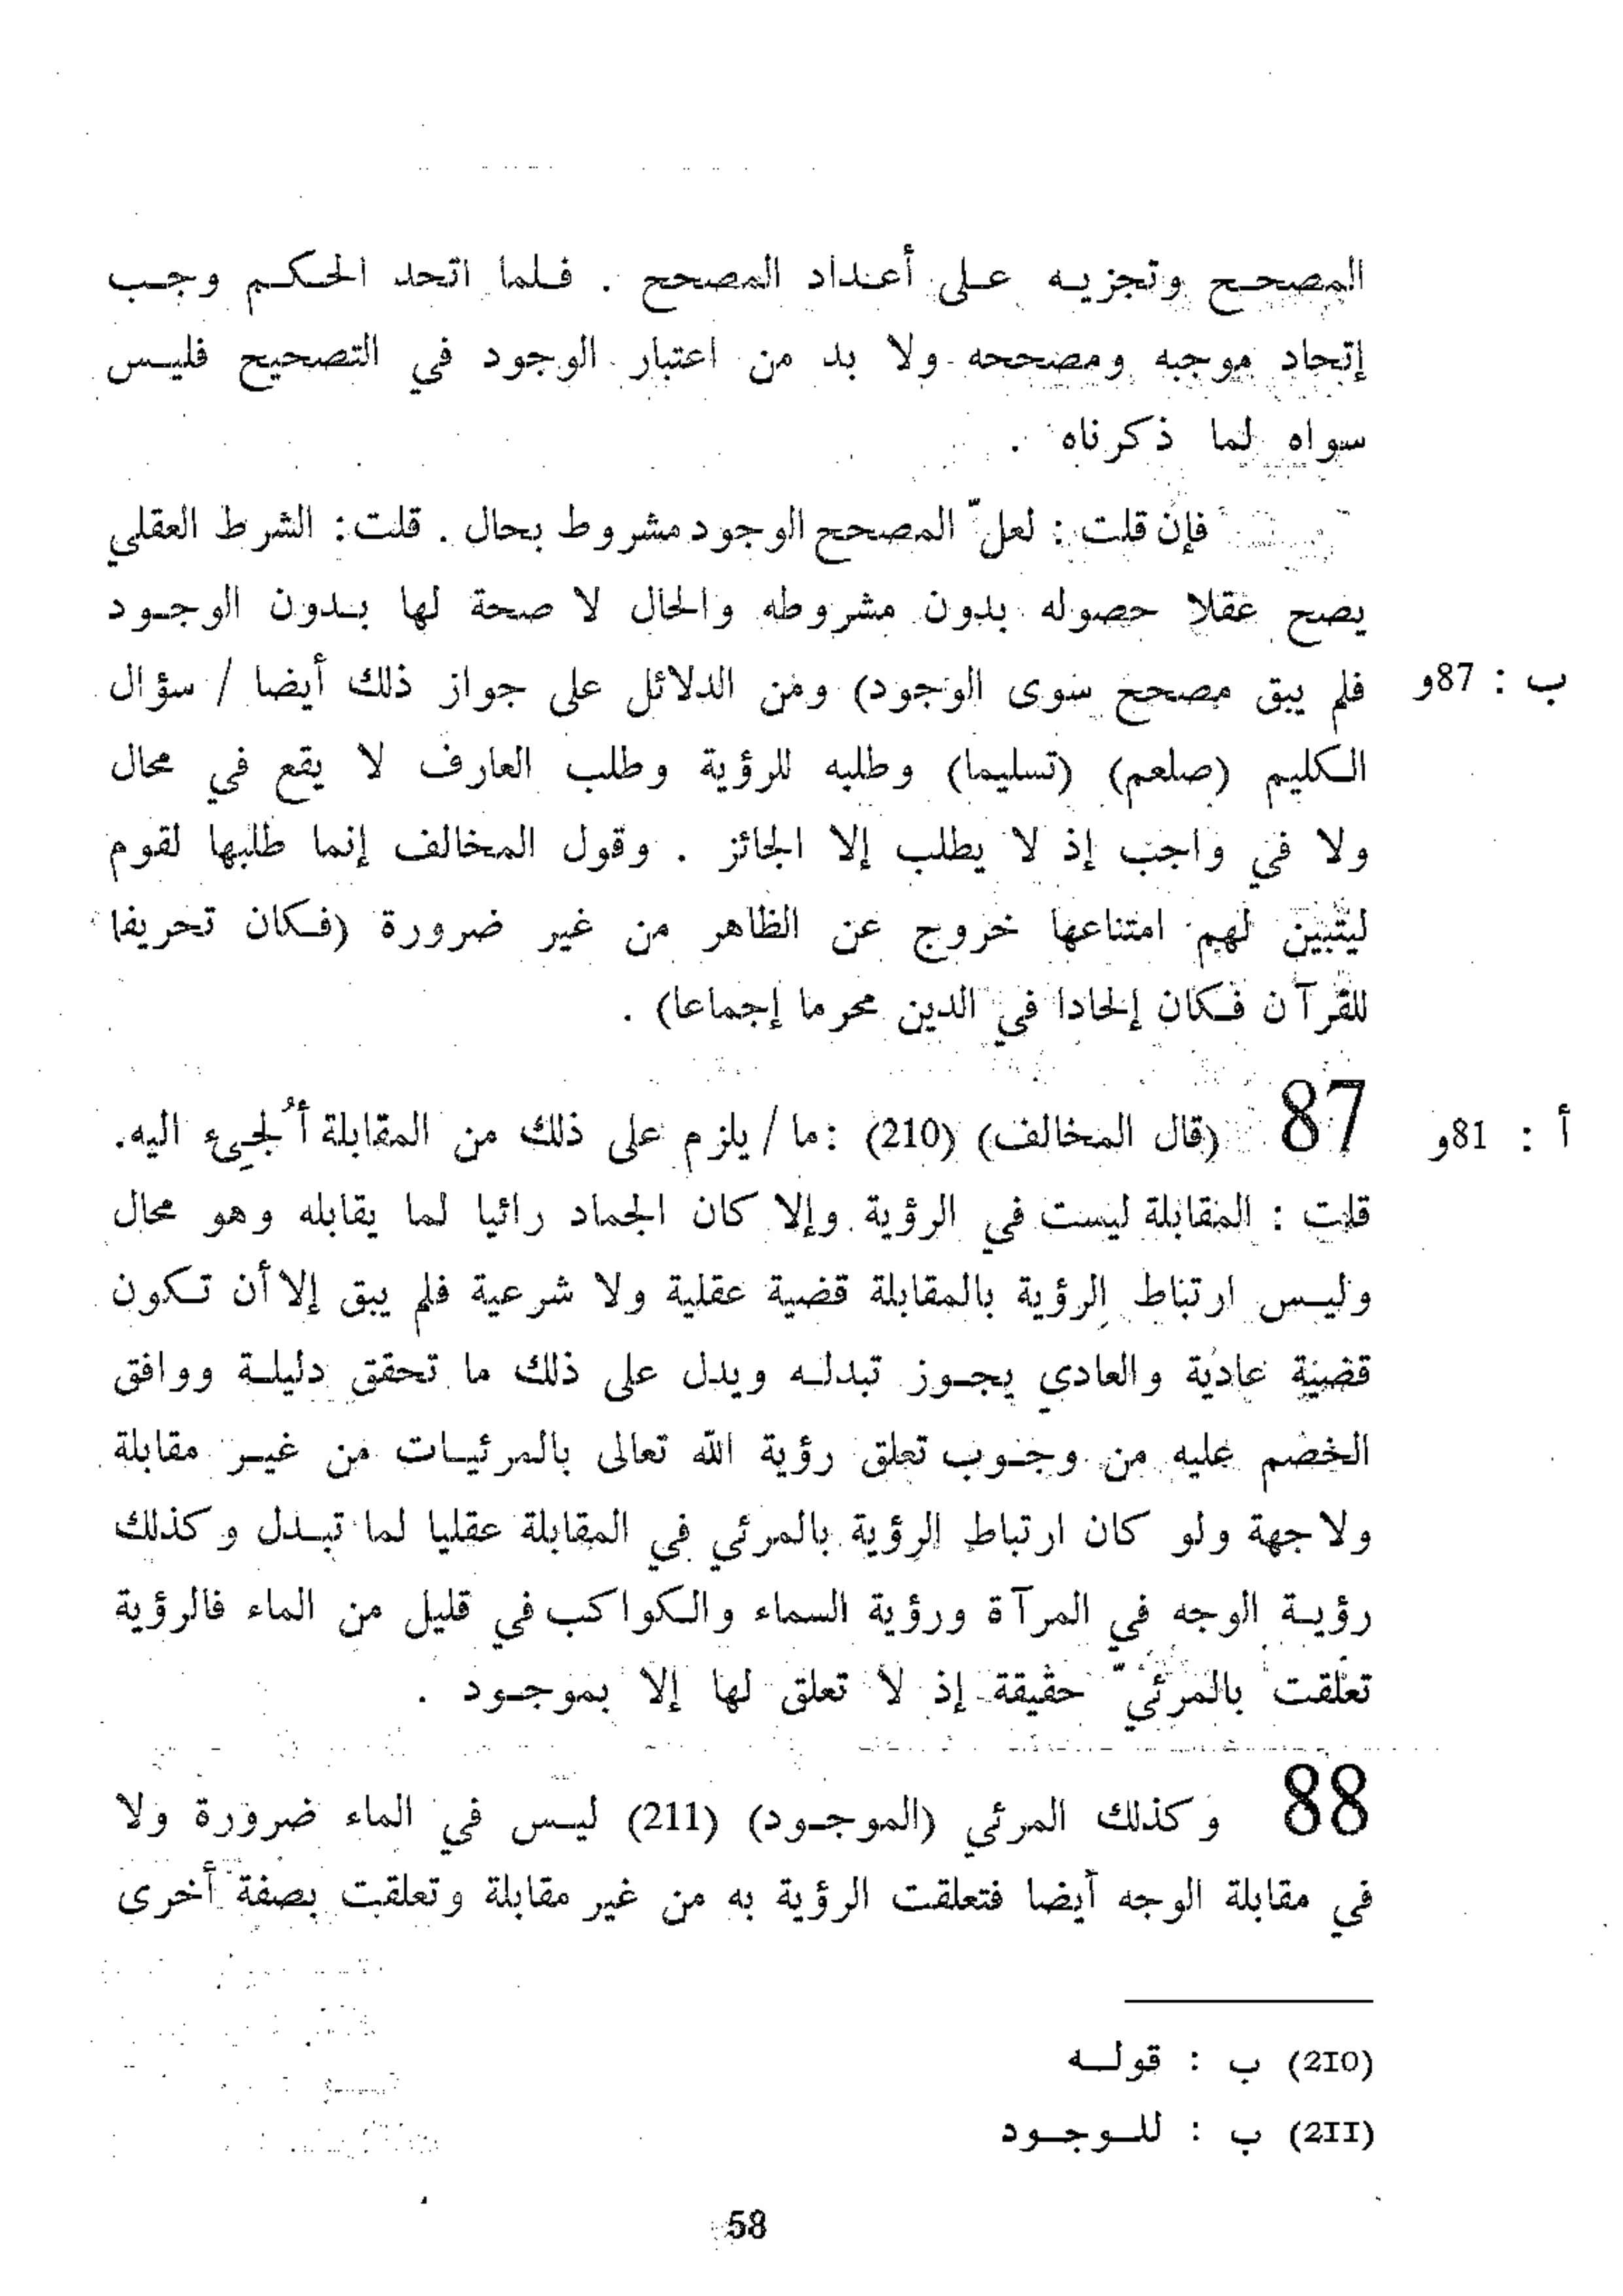 المصحـح وتجزيـه عـلى أعـداد المصحح . فـلما اتحد الحـكـم وجـب
إتحاد موجبه ومصححه ولا بد من اعتبار الوجود في التصحيح فليـس
سواه لما ذكرناه .
فإن قلت : لعلّ المصحح الوجود مشروط بحال . قلت : الشرط العقلي
يصح عقلا حصوله بدون مشروطه والحال لا صحة لها بـدون الوجـود
ب : 87و فلم يبق مصحح سوى الوجود) ومن الدلائل على جواز ذلك أيضا / سؤال
الكليم (صلعم) (تسليما) وطلبه للرؤية وطلب العارف لا يقع في محال
ولا في واجب إذ لا يطلب إلا الجائز . وقول المخالف إنما طلبها لقوم
ليتبين لهم امتناعها خروج عن الظاهر من غير ضرورة (فـكان تحريفا
للقرآن فـكان إلحادا في الدين محرما إجماعا) .
أ : 81و 87 (قال المخالف) (210) : ما / يلزم على ذلك من المقابلة أُلجىء اليه.
قلت : المقابلة ليست في الرؤية وإلا كان الجماد رائيا لما يقابله وهو محال
وليـس ارتباط الرؤية بالمقابلة قضية عقلية ولا شرعية فلم يبق إلا أن تـكون
قضية عادية والعادي يجـوز تبدلـه ويدل على ذلك ما تحقق دليلـة ووافق
الخصم عليه من وجـوب تعلق رؤية الله تعالى بالمرئيـات من غيـر مقابلة
ولا جهة ولو كان ارتباط الرؤية بالمرئي في المقابلة عقليا لما تبـدل وكذلك
رؤيـة الوجه في المرآة ورؤية السماء والـكواكب في قليل من الماء فالرؤية
تعلقت بالمرئيّ حقيقة إذ لا تعلق لها إلا بموجـود .
88 وكذلك المرئي (الموجـود) (211) ليـس في الماء ضرورة ولا
في مقابلة الوجه أيضا فتعلقت الرؤية به من غير مقابلة وتعلقت بصفة أخرى
(210) ب : قولـه
(211) ب : للـوجـود
58